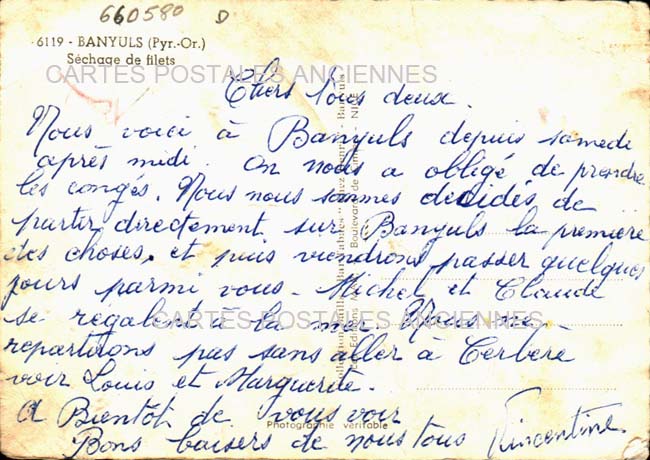 660580 D
6119 - BANYULS (Pyr.-Or.)
Séchage de filets
CARTES POSTALES ANCIENNES
Chers tous deux.
Nous voici à Banyuls depuis samedi
après midi. On nous a obligé de prendre
les congés. Nous nous sommes decidés de
partir directement sur Banyuls la première
des choses. et puis viendrons passer quelques
jours parmi vous - Michel et Claude
se regalent à la mer. Nous ne
CARTES POSTALES ANCIENNES
repartirons pas sans aller à Cerbère
voir Louis et Marguerite.
A Bientôt de vous voir
Photographie véritable
Bons baisers de nous tous Vincentine.
NICE